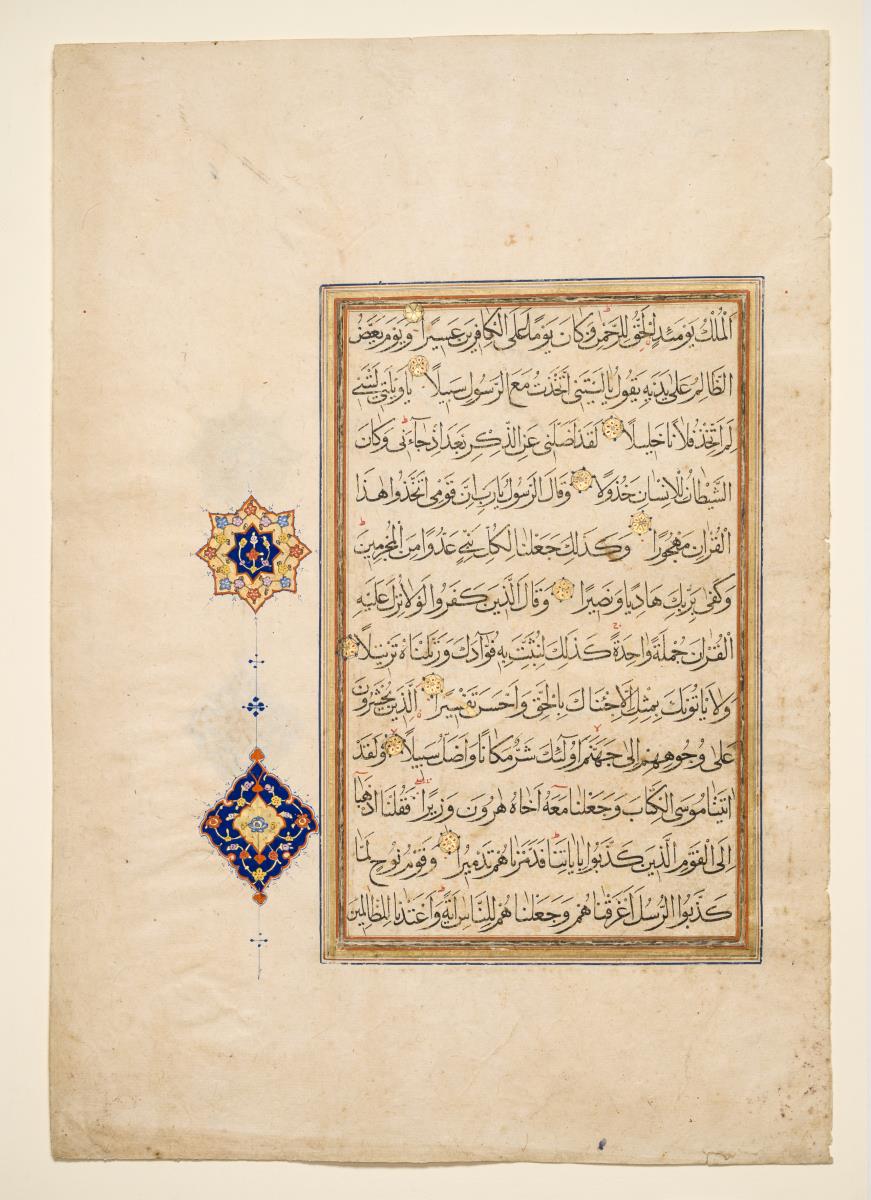 اَلْمُلْكُ يَوْمَئِذٍ الْحَقُّ لِلرَّحْمٰنِ وَكَانَ يَوْمًا عَلَى الْكَافِرِينَ عَسِيرًا وَيَوْمَ يَعَضُّ
الظَّالِمُ عَلٰى يَدَيْهِ يَقُولُ يَا لَيْتَنِى اتَّخَذْتُ مَعَ الرَّسُولِ سَبِيلًا يَا وَيْلَتٰى لَيْتَنِى
لَمْ اَتَّخِذْ فُلَانًا خَلِيلًا لَقَدْ اَضَلَّنِى عَنِ الذِّكْرِ بَعْدَ اِذْ جَآءَنِى وَكَانَ
الشَّيْطَانُ لِلْاِنْسَانِ خَذُولًا وَقَالَ الرَّسُولُ يَا رَبِّ اِنَّ قَوْمِى اتَّخَذُوا هٰذَا
الْقُرْاٰنَ مَهْجُورًا وَكَذٰلِكَ جَعَلْنَا لِكُلِّ نَبِىٍّ عَدُوًّا مِنَ الْمُجْرِمِينَ
وَكَفٰى بِرَبِّكَ هَادِيًا وَنَصِيرًا وَقَالَ الَّذِينَ كَفَرُوا لَوْلَا نُزِّلَ عَلَيْهِ
الْقُرْاٰنُ جُمْلَةً وَاحِدَةً كَذٰلِكَ لِنُثَبِّتَ بِهِ فُؤَادَكَ وَرَتَّلْنَاهُ تَرْتِيلًا
وَلَا يَاْتُونَكَ بِمَثَلٍ اِلَّا جِئْنَاكَ بِالْحَقِّ وَاَحْسَنَ تَفْسِيرًا اَلَّذِينَ يُحْشَرُونَ
عَلٰى وُجُوهِهِمْ اِلٰى جَهَنَّمَ اُولٰئِكَ شَرٌّ مَكَانًا وَاَضَلُّ سَبِيلًا وَلَقَدْ
اٰتَيْنَا مُوسَى الْكِتَابَ وَجَعَلْنَا مَعَهُ اَخَاهُ هٰرُونَ وَزِيرًا فَقُلْنَا اذْهَبَآ
اِلَى الْقَوْمِ الَّذِينَ كَذَّبُوا بِاٰيَاتِنَا فَدَمَّرْنَاهُمْ تَدْمِيرًا وَقَوْمَ نُوحٍ لَمَّا
كَذَّبُوا الرُّسُلَ اَغْرَقْنَاهُمْ وَجَعَلْنَاهُمْ لِلنَّاسِ اٰيَةً وَاَعْتَدْنَا لِلظَّالِمِينَ